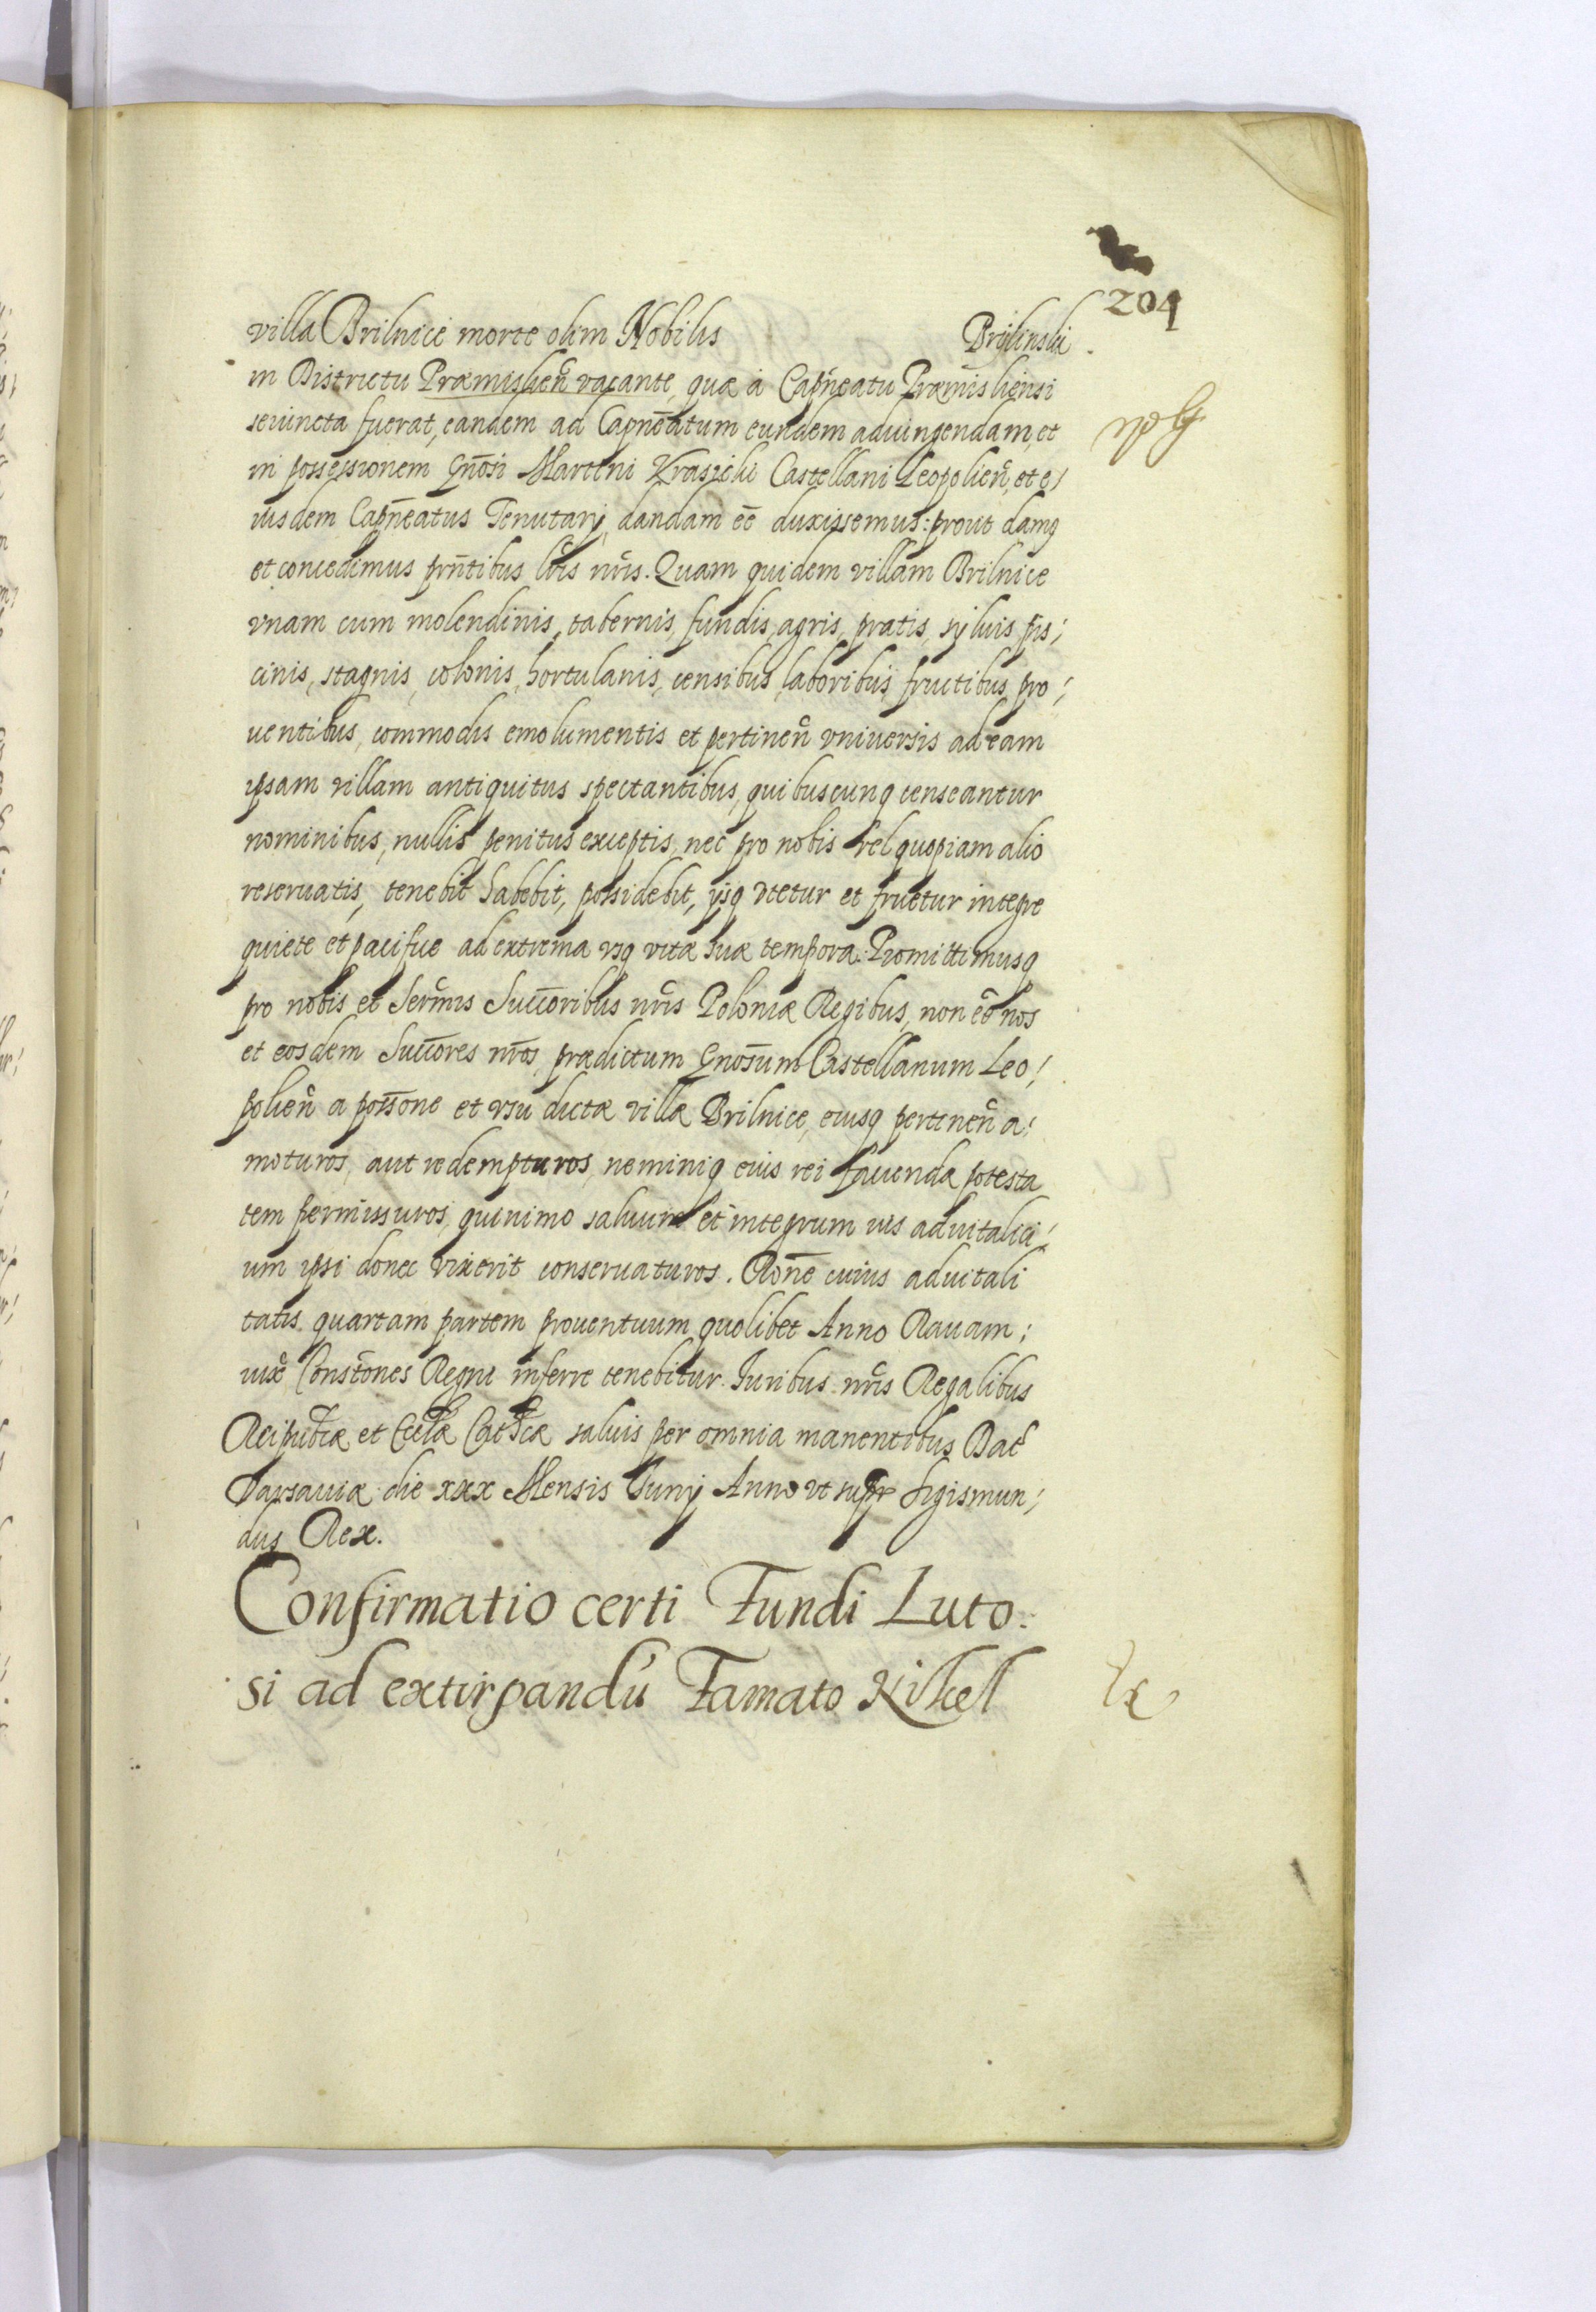 204
villa Brilnice morte olim Nobilis Brylinski
in Districtu Præmislieñ vacante, quæ à Capñeatu Præmisliensi
seiuncta fuerat, eandem ad Capñeatum eundem adiungendam, et
in possessionem Gñosi Martini Krasicki Castellani Leopolieñ, et e/
iusdem Capñeatus Tenutarij, dandam eē duxissemus: prout damq
et concedimus prñtibus lr̃is nr̃is. Quam quidem villam Brilnice
vnam cum molendinis, tabernis, fundis, agris, pratis, syluis pis;
cinis, stagnis, colonis, hortulanis, censibus, laboribus, fructibus, pro;
uentibus, commodis emolumentis et pertineñ vniuersis ad eam
ipsam villam antiquitus spectantibus, quibuscunq censeantur
nominibus, nullis penitus exceptis, nec pro nobis vel quopiam alio
reseruatis, tenebit habebit, possidebit, ijsq vtetur et fruetur integre
quiete et pacifice ad extrema vsq vitæ suæ tempora. Promittimusq
pro nobis et Serm̃is Succ̃oribus nr̃is Poloniæ Regibus, non eē nos
et eosdem Succ̃ores nr̃os, prædictum Gñosum Castellanum Leo;
polieñ a poss̃one et vsu dictæ villæ Brilnice, eiusq pertineñ a;
moturos, aut redempturos, neminiq eius rei faciendæ potesta
tem permissuros, quinimo saluum et integrum ius aduitalici;
um ipsi donec vixerit conseruaturos. Rõne cuius aduitali
tatis quartam partem prouentuum quolibet Anno Rauam;
iuxẽ Constõnes Regni inferre tenebitur. Juribus nr̃is Regalibus
Reipub̃cæ et Ecc̃læ Cath̃cæ saluis per omnia manentibus Daẽ
Varsauiæ die xxx Mensis Junij Anno vt supr̃ Sigismun;
dus Rex.
Confirmatio certi Fundi Luto:
si ad extirpandũ Famato Nikel